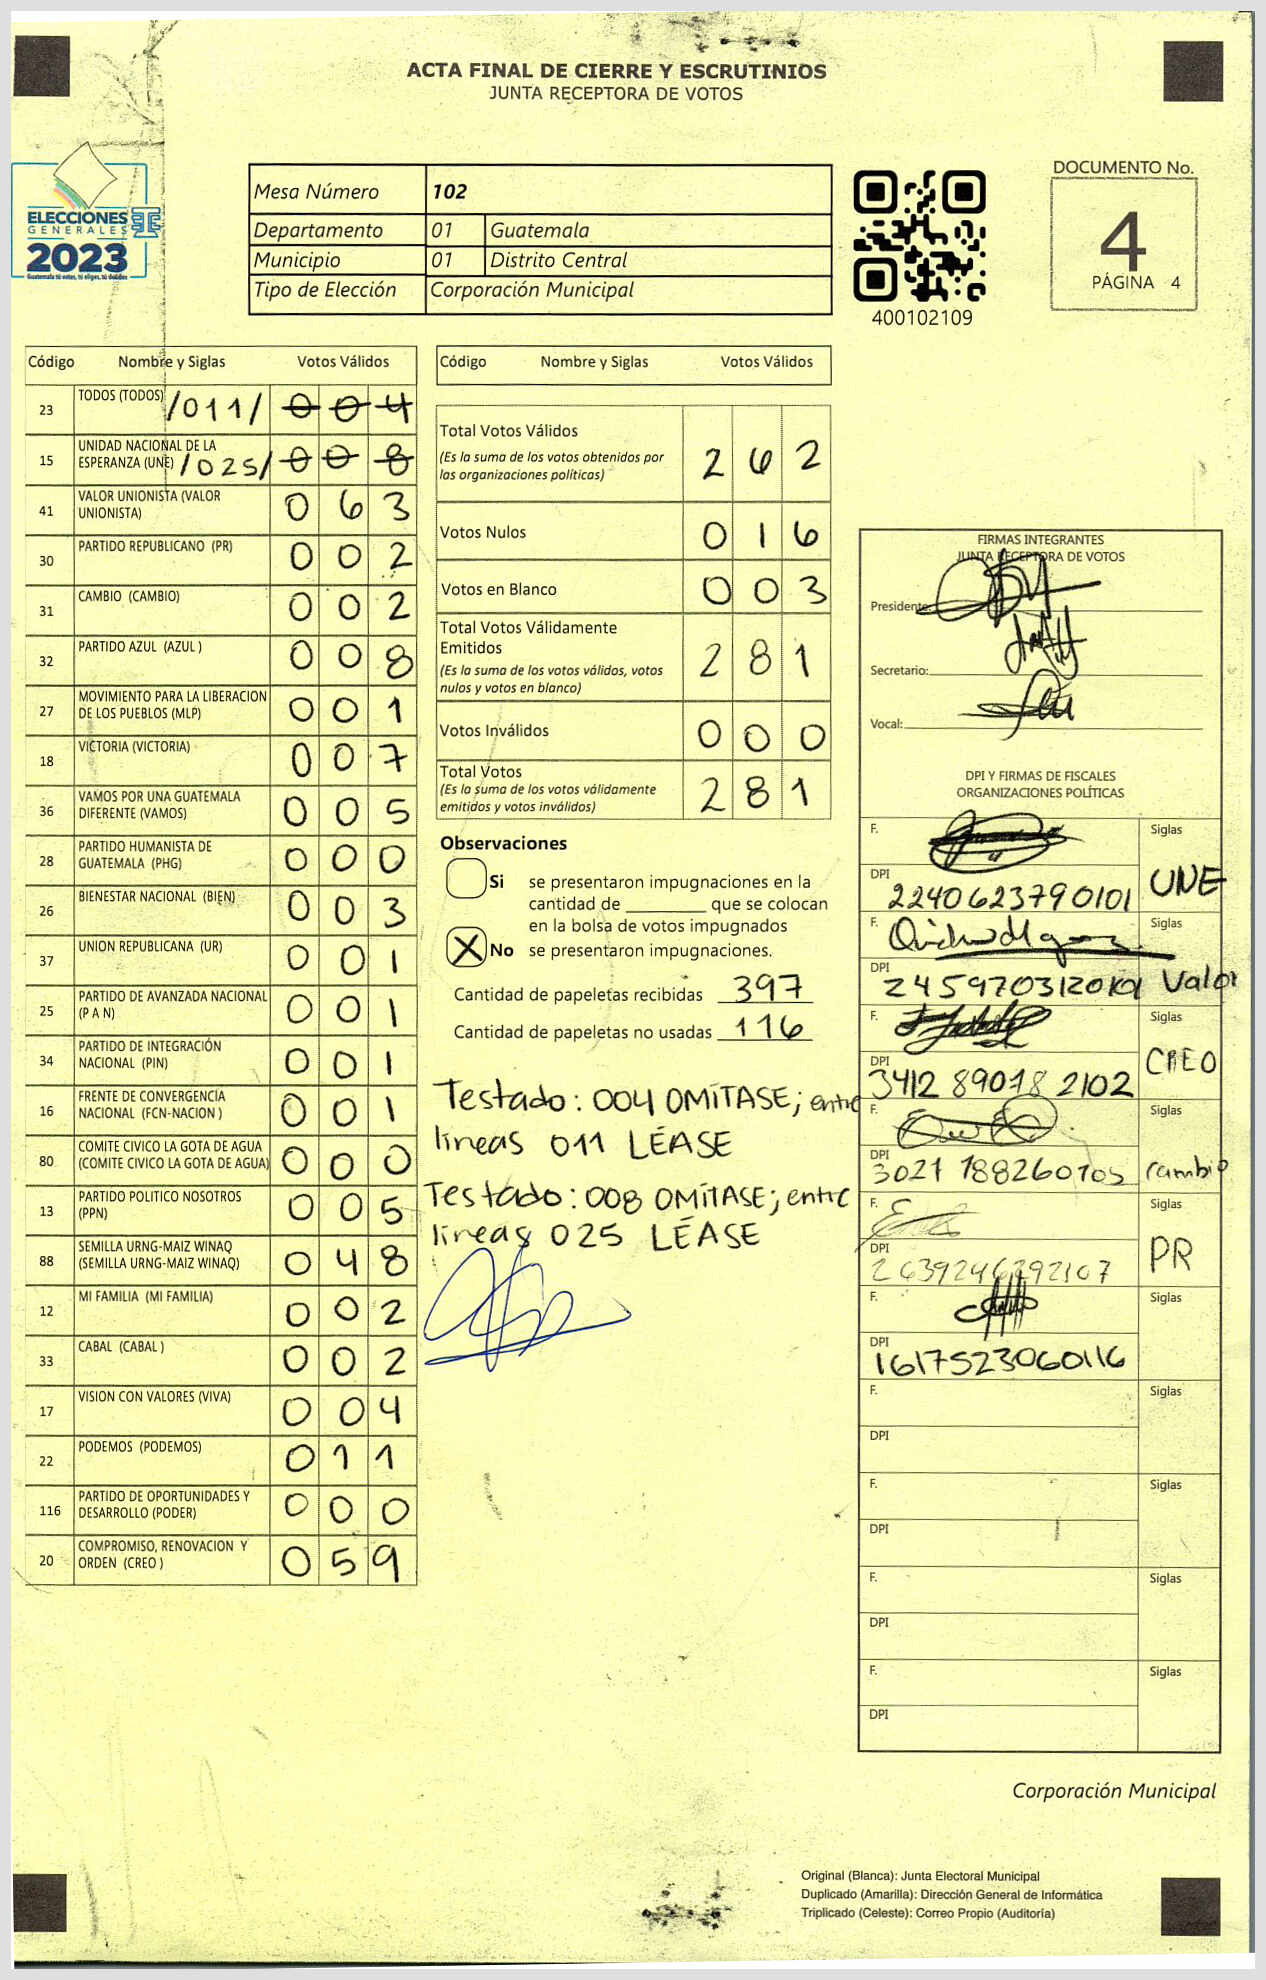 ACTA FINAL DE CIERRE Y ESCRUTINIOS
JUNTA RECEPTORA DE VOTOS
ELECCIONES
GENERALES
2023
Guatemala tú votas, tú eliges, tú decides
Mesa Número 102
Departamento 01 Guatemala
Municipio 01 Distrito Central
Tipo de Elección Corporación Municipal
400102109
DOCUMENTO No.
4
PÁGINA 4
Código Nombre y Siglas Votos Válidos
23 TODOS (TODOS) /011/ 0 0 4
15 UNIDAD NACIONAL DE LA
ESPERANZA (UNE) /025/ 0 0 8
41 VALOR UNIONISTA (VALOR
UNIONISTA) 0 6 3
30 PARTIDO REPUBLICANO (PR) 0 0 2
31 CAMBIO (CAMBIO) 0 0 2
32 PARTIDO AZUL (AZUL ) 0 0 8
27 MOVIMIENTO PARA LA LIBERACION
DE LOS PUEBLOS (MLP) 0 0 1
18 VICTORIA (VICTORIA) 0 0 7
36 VAMOS POR UNA GUATEMALA
DIFERENTE (VAMOS) 0 0 5
28 PARTIDO HUMANISTA DE
GUATEMALA (PHG) 0 0 0
26 BIENESTAR NACIONAL (BIEN) 0 0 3
37 UNION REPUBLICANA (UR) 0 0 1
25 PARTIDO DE AVANZADA NACIONAL
(P A N) 0 0 1
34 PARTIDO DE INTEGRACIÓN
NACIONAL (PIN) 0 0 1
16 FRENTE DE CONVERGENCIA
NACIONAL (FCN-NACION ) 0 0 1
80 COMITE CIVICO LA GOTA DE AGUA
(COMITE CIVICO LA GOTA DE AGUA) 0 0 0
13 PARTIDO POLITICO NOSOTROS
(PPN) 0 0 5
88 SEMILLA URNG-MAIZ WINAQ
(SEMILLA URNG-MAIZ WINAQ) 0 4 8
12 MI FAMILIA (MI FAMILIA) 0 0 2
33 CABAL (CABAL ) 0 0 2
17 VISION CON VALORES (VIVA) 0 0 4
22 PODEMOS (PODEMOS) 0 1 1
116 PARTIDO DE OPORTUNIDADES Y
DESARROLLO (PODER) 0 0 0
20 COMPROMISO, RENOVACION Y
ORDEN (CREO ) 0 5 9
Código Nombre y Siglas Votos Válidos
Total Votos Válidos 2 6 2
(Es la suma de los votos obtenidos por
las organizaciones políticas)
Votos Nulos 0 1 6
Votos en Blanco 0 0 3
Total Votos Válidamente
Emitidos 2 8 1
(Es la suma de los votos válidos, votos
nulos y votos en blanco)
Votos Inválidos 0 0 0
Total Votos 2 8 1
(Es la suma de los votos válidamente
emitidos y votos inválidos)
Observaciones
Si se presentaron impugnaciones en la
cantidad de ________ que se colocan
en la bolsa de votos impugnados
X No se presentaron impugnaciones.
Cantidad de papeletas recibidas 397
Cantidad de papeletas no usadas 116
Testado: 004 OMÍTASE; entre
lineas 011 LÉASE
Testado: 008 OMÍTASE; entre
lineas 025 LÉASE
FIRMAS INTEGRANTES
JUNTA RECEPTORA DE VOTOS
Presidente:
Secretario:
Vocal:
DPI Y FIRMAS DE FISCALES
ORGANIZACIONES POLÍTICAS
F. Siglas
DPI 2240623790101 UNE
F. Siglas
DPI Valor
F. Siglas
DPI 3412 89018 2102 CREO
F. Siglas
DPI 3021 188260105 cambio
F. Siglas
DPI 2639246292107 PR
F. Siglas
DPI 1617523060116
F. Siglas
DPI
F. Siglas
DPI
F. Siglas
DPI
F. Siglas
DPI
Corporación Municipal
Original (Blanca): Junta Electoral Municipal
Duplicado (Amarilla): Dirección General de Informática
Triplicado (Celeste): Correo Propio (Auditoría)